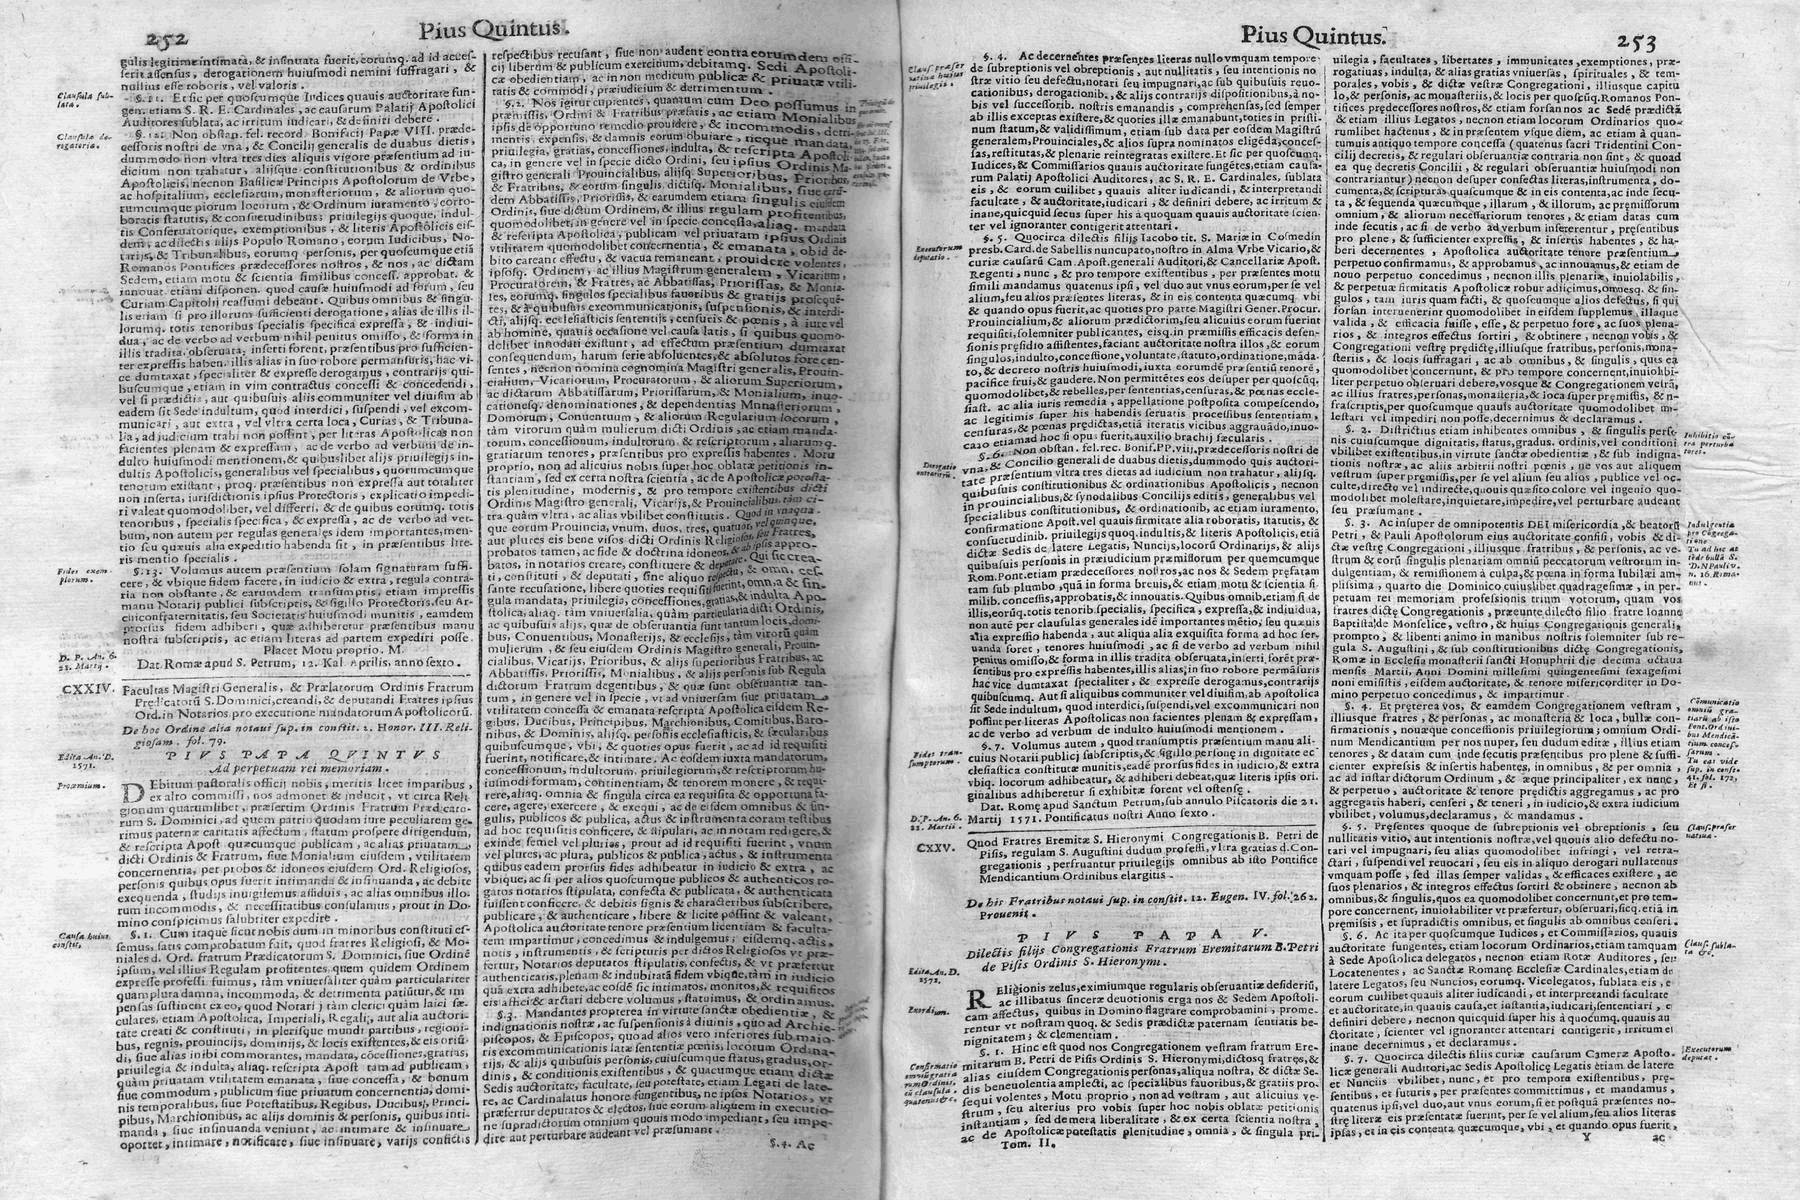 252
Pius Quintus.
gulis legitime intimata, & insinuata fuerit, eorumq. ad id acces-
serit assensus, derogationem huiusmodi nemini suffragari, &
nullius esse roboris, vel valoris.
Clausula sub-
lata.
§. 11. Et sic per quoscumque Iudices quauis auctoritate fun-
gen. etiam S. R. E. Cardinales, ac causarum Palatij Apostolici
Auditores sublata, ac irritum iudicari, & definiri debere.
Clausula de-
rogatoria.
§. 12. Non obstan. fel. record. Bonifacij Papæ VIII. præde-
cessoris nostri de vna, & Concilij generalis de duabus dietis,
dummodo non vltra tres dies aliquis vigore præsentium ad iu-
dicium non trahatur, alijsque constitutionibus & ordinibus
Apostolicis, necnon Basilicæ Principis Apostolorum de Vrbe,
ac hospitalium, ecclesiarum, monasteriorum, & aliorum quo-
rumcumque piorum locorum, & Ordinum iuramento, corro-
boratis statutis, & consuetudinibus: privilegijs quoque, indul-
tis Conseruatorijsque, exemptionibus, & literis Apostolicis eis-
dem, ac dilectis filijs Populo Romano, eorum Iudicibus, No-
tarijs, & Tribunalibus, eorumq. personis, per quoscumque etiã
Romanos Pontifices prædecessores nostros, & nos, ac dictam
Sedem, etiam motu & scientia similibus concess. approbat. &
innouat. etiam disponen. quod causæ huiusmodi ad forum, seu
Curiam Capitolij reassumi debeant. Quibus omnibus & singu-
lis etiam si pro illorum sufficienti derogatione, alias de illis il-
lorumq. totis tenoribus specialis specifica expressa, & indiui-
dua, ac de verbo ad verbum nihil penitus omisso, & forma in
illis tradita obseruata, inserti forent, præsentibus pro sufficien-
ter expressis haben. illis alias in suo robore permansuris, hac vi-
ce dumtaxat, specialiter & expresse derogamus, contrarijs qui-
buscumque, etiam in vim contractus concessi & concedendi,
vel si prædictis, aut quibusuis aliis communiter vel diuisim ab
eadem sit Sede indultum, quod interdici, suspendi, vel excom-
municari, aut extra, vel vltra certa loca, Curias, & Tribuna-
lia, ad iudicium trahi non possint, per literas Apostolicas non
facientes plenam & expressam, ac de verbo ad verbum de in-
dulto huiusmodi mentionem, & quibuslibet alijs priuilegijs in-
dultis Apostolicis, generalibus vel specialibus, quorumcumque
tenorum existant, proq. præsentibus non expressa aut totaliter
non inserta, iurisdictionis ipsius Protectoris, explicatio impedi-
ri valeat quomodolibet, vel differri, & de quibus eorumq. totis
tenoribus, specialis specifica, & expressa, ac de verbo ad ver-
bum, non autem per regulas generales idem importantes, men-
tio seu quæuis alia expeditio habenda sit, in præsentibus lite-
ris mentio specialis.
Fides exem-
plorum.
§. 13. Volumus autem præsentium solam signaturam suffi-
cere, & vbique fidem facere, in iudicio & extra, regula contra-
ria non obstante, & earumdem transumptis, etiam impressis
manu Notarij publici subscriptis, & sigillo Protectoris, seu Ar-
chiconfraternitatis, seu Societatis huiusmodi munitis, eamdem
prorsus fidem adhiberi, quæ adhiberetur præsentibus manu
nostra subscriptis, ac etiam literas ad partem expediri posse.
Placet Motu proprio. M.
D. P. An. 6.
21. Martij.
Dat. Romæ apud S. Petrum, 12. Kal. Aprilis, anno sexto.
CXXIV.
Facultas Magistri Generalis, & Prælatorum Ordinis Fratrum
Prædicatorũ S. Dominici, creandi, & deputandi Fratres ipsius
Ord. in Notarios pro executione mandatorum Apostolicorũ.
De hoc Ordine alia notaui sup. in constit. 2. Honor. III. Reli-
giosam. fol. 79.
Edita An. D.
1571.
PIVS PAPA QVINTVS
Ad perpetuam rei memoriam.
Proœmium.
DEbitum pastoralis officij nobis, meritis licet imparibus,
ex alto commissi, nos admonet & inducit, vt circa Reli-
gionum quarumlibet, præsertim Ordinis Fratrum Prædicato-
rum S. Dominici, ad quem patrio quodam iure peculiarem ge-
rimus paternæ caritatis affectum, statum prospere dirigendum,
& rescripta Apost. quæcumque publicam, ac alias priuatam
dicti Ordinis & Fratrum, siue Monialium eiusdem, vtilitatem
concernentia, per probos & idoneos eiusdem Ord. Religiosos,
personis quibus opus fuerit intimanda & insinuanda, ac debite
exequenda, studijs inuigilemus assiduis, ac alias omnibus illo-
rum incommodis, & necessitatibus consulamus, prout in Do-
mino conspicimus salubriter expedire.
Causa huius
constit.
§. 1. Cum itaque sicut nobis dum in minoribus constituti es-
semus, satis comprobatum fuit, quod fratres Religiosi, & Mo-
niales d. Ord. fratrum Prædicatorum S. Dominici, siue Ordinẽ
ipsum, vel illius Regulam profitentes, quem quidem Ordinem
expresse professi fuimus, tàm vniuersaliter quàm particulariter
quamplura damna, incommoda, & detrimenta patiũtur, & im-
pensas sustinent ex eo, quod Notari j tàm clerici quàm laici sæ-
culares, etiam Apostolica, Imperiali, Regali, aut alia auctori-
tate creati & constituti, in plerisque mundi partibus, regioni-
bus, regnis, prouincijs, dominijs, & locis existentes, & eis oriũ-
di, siue alias inibi commorantes, mandata, cõcessiones, gratias,
priuilegia & indulta, aliaq. rescripta Apost tam ad publicam,
quàm priuatam vtilitatem emanata, siue concessa, & bonum
siue commodum, publicum siue priuatum concernentia, domi-
nis temporalibus, siue Potestatibus, Regibus, Ducibus, Princi-
pibus, Marchionibus, ac alijs dominis & personis, quibus inti-
manda, siue insinuanda veniunt, ac intimare & insinuare
oportet, intimare, notificare, siue insinuare, varijs conflictis
respectibus recusant, siue non audent contra eorumdem offi-
cij liberum & publicum exercitium, debitamq. Sedi Apostoli-
cæ obedientiam, ac in non medicum publicæ & priuatæ vtili-
tatis & commodi, præiudicium & detrimentum.
§. 2. Nos igitur cupientes, quantum cum Deo possumus in
præmissis, Ordini & Fratribus præfatis, ac etiam Monialibus
ipsis de opportuno remedio prouidere, & incommodis, detri-
mentis, expensis, & damnis eorum obuiare, necque mandata,
priuilegia, gratias, concessiones, indulta, & rescripta Apostoli-
ca, in genere vel in specie dicto Ordini, seu ipsius Ordinis Ma-
gistro generali Prouincialibus, alijsq. Superioribus, Prioribus,
& Fratribus, & eorum singulis, dictisq. Monialibus, siue earum
Abbatissis, Priorissis, & earumdem etiam singulis eiusdem
Ordinis, siue dictum Ordinem, & illius regulam profitentibus,
quomodolibet, in genere vel in specie concessa, aliaq. mandata
& rescripta Apostolica, publicam vel priuatam ipsius Ordinis
vtilitatem quomodolibet concernentia, & emanata, obid de-
bito careant effectu, & vacua remaneant, prouidere volentes,
ipsosq. Ordinem, ac illius Magistrum generalem, Vicarium,
Procuratorem, & Fratres, ac Abbatissas, Priorissas, & Monia-
les, eorumq. singulos specialibus fauoribus & gratijs prosequẽ-
tes, & à quibusuis excommunicationis, suspensionis, & interdi-
cti, alijsq. ecclesiasticis sententijs, censuris & pœnis, à iure vel
ab homine, quauis occasione vel causa latis, si quibus quomo-
dolibet innodati existunt, ad effectum præsentium dumtaxat
consequendum, harum serie absoluentes, & absolutos fore cen-
sentes, necnon nomina cognomina Magistri generalis, Prouin-
cialium, Vicariorum, Procuratorum, & aliorum Superiorum,
ac dictarum Abbatissarum, Priorissarum, & Monialium, inuo-
cationesq. denominationes, & dependentias Monasteriorum,
Domorum, Conuentuum, & aliorum Regularium locorum,
tàm virorum quàm mulierum dicti Ordinis, ac etiam manda-
torum, concessionum, indultorum. & rescriptorum, aliarumq.
gratiarum tenores, præsentibus pro expressis habentes. Motu
proprio, non ad alicuius nobis super hoc oblatæ petitionis in-
stantiam, sed ex certa nostra scientia, ac de Apostolicæ potesta-
tis plenitudine, modernis, & pro tempore existentibus dicti
Ordinis Magistro generali, Vicarijs, & Prouincialibus, tàm ci-
tra quàm vltra, ac alias vbilibet constitutis. Quod in vnaqua-
que eorum Prouincia, vnum, duos, tres, quatuor, vel quinque,
aut plures eis bene visos dicti Ordinis Religiosos, seu Fratres,
probatos tamen, ac fide & doctrina idoneos, & ab ipsis appro-
batos, in notarios creare, constituere & deputare. Qui sic crea-
ti, constituti, & deputati, sine aliquo respectu, & omn. ces-
sante recusatione, libere quoties requisiti fuerint, omnia & sin-
gula mandata, priuilegia, concessiones, gratias, & indulta Apo-
stolica, aliaq. tàm vniuersalia, quàm particularia dicti Ordinis,
ac quibusuis alijs, quæ de obseruantia sunt tantum locis, domi-
bus, Conuentibus, Monasterijs, & ecclesijs, tàm virorũ quàm
mulierum, & seu eiusdem Ordinis Magistro generali, Prouin-
cialibus, Vicarijs, Prioribus, & alijs superioribus Fratribus, ac
Abbatissis, Priorissis, Monialibus, & alijs personis sub Regula
dictorum Fratrum degentibus; & quæ sunt obseruantiæ tan-
tum, in genere vel in specie, vt ad vniuersam siue priuatam
vtilitatem concessa & emanata rescripta Apostolica eisdem Re-
gibus. Ducibus, Principibus, Marchionibus, Comitibus, Baro-
nibus, & Dominis, alijsq. personis ecclesiasticis, & sæcularibus
quibuscumque, vbi, & quoties opus fuerit, ac ad id requisiti
fuerint, notificare, & intimare. Ac eosdem iuxta mandatorum,
concessionum, indultorum, priuilegiorum, & rescriptorum hu-
iusmodi formam, continentiam, & tenorem monere, & requi-
rere, aliaq. omnia & singula circa ea requisita & opportuna fa-
cere, agere, exercere, & exequi, ac de eisdem omnibus & sin-
gulis, publicos & publica, actus & instrumenta coram testibus
ad hoc requisitis conficere, & stipulari, ac in notam redigere, &
exinde semel vel pluries, prout ad id requisiti fuerint, vnum
vel plures, ac plura, publicos & publica, actus, & instrumenta
quibus eadem prorsus fides adhibeatur in iudicio & extra, ac
vbique, ac si per alios quoscumque publicos & authenticos ro-
gatos notarios stipulata, confecta & publicata, & authenticata
fuissent conficere. & debitis signis & characteribus subscribere,
publicare, & authenticare, libere & licite possint & valeant,
Apostolica auctoritate tenore præsentium licentiam & faculta-
tem impartimur, concedimus & indulgemus; eisdemq. actis,
notis, instrumentis, & scripturis per dictos Religiosos vt præ-
fertur, Notarios deputatos stipulatis, confectis, & vt præfertur
authenticatis, plenam & indubitatã fidem vbique, tàm in iudicio
quã extra adhiberi, ac eosdẽ sic intimatos, monitos, & requisitos
eis astrici & arctari debere volumus, statuimus, & ordinamus.
§. 3. Mandantes propterea in virtute sanctæ obedientiæ, &
indignationis nostræ, ac suspensionis à diuinis, quo ad Archie-
piscopos, & Episcopos, quo ad alios vero inferiores sub maio-
ris excommunicationis latæ sententiæ pœnis, locorum Ordina-
rijs, & alijs quibusuis personis, cuiuscumque status, gradus, or-
dinis, & conditionis existentibus, & quacumque etiam dictæ
Sedis auctoritate, facultate, seu potestate, etiam Legati de late-
re, ac Cardinalatus honore fungentibus, ne ipsos Notarios, vt
præfertur deputatos & electos, siue eorum aliquem in executio-
ne supradictorum omnium quouis modo impediant, seu impe-
dire aut perturbare audeant vel præsumant.
§. 4. Ac
Pius Quintus.
253
Claus. præser
uatiua huius
priuilegij.
§. 4. Ac decernentes præsentes literas nullo vmquam tempore
de subreptionis vel obreptionis, aut nullitatis, seu intentionis no
stræ vitio seu defectu, notari seu impugnari, ac sub quibusuis reuo-
cationibus, derogationib. & alijs contrarijs dispositionibus, à no-
bis vel successorib. nostris emanandis, comprehensas, sed semper
ab illis exceptas existere, & quoties illæ emanabunt, toties in pristi-
num statum, & validissimum, etiam sub data per eosdem Magistrũ
generalem, Prouinciales, & alios supra nominatos eligẽda, conces-
sas, restitutas, & plenarie reintegratas existere. Et sic per quoscumq.
Iudices, & Commissarios quauis auctoritate fungẽtes, etiam causa-
rum Palatij Apostolici Auditores, ac S. R. E. Cardinales, sublata
eis, & eorum cuilibet, quauis aliter iudicandi, & interpretandi
facultate, & auctoritate, iudicari, & definiri debere, ac irritum &
inane, quicquid secus super his à quoquam quauis auctoritate scien-
ter vel ignoranter contigerit attentari.
Executorum
deputatio.
§. 5. Quocirca dilectis filijs Iacobo tit. S. Mariæ in Cosmedin
presb. Card. de Sabellis nuncupato, nostro in Alma Vrbe Vicario, &
curiæ causarũ Cam. Apost. generali Auditori, & Cancellariæ Apost.
Regenti, nunc, & pro tempore existentibus, per præsentes motu
simili mandamus quatenus ipsi, vel duo aut vnus eorum, per se vel
alium, seu alios præsentes literas, & in eis contenta quæcumq. vbi
& quando opus fuerit, ac quoties pro parte Magistri Gener. Procur.
Prouincialium, & aliorum prædictorum, seu alicuius eorum fuerint
requisiti, solemniter publicantes, eisq. in præmissis efficacis defen-
sionis præsidio assistentes, faciant auctoritate nostra illos, & eorum
singulos, indulto, concessione, voluntate, statuto, ordinatione, mãda-
to, & decreto nostris huiusmodi, iuxta eorumdẽ præsentiũ tenorẽ,
pacifice frui, & gaudere. Non permittẽtes eos desuper per quoscũq.
quomodolibet, & rebelles, per sententias, censuras, & pœnas eccle-
siast. ac alia iuris remedia, appellatione postposita compescendo,
ac legitimis super his habendis seruatis processibus sententiam,
censuras, & pœnas prædictas, etiã iteratis vicibus aggrauãdo, inuo-
cato etiam ad hoc si opus fuerit, auxilio brachij sæcularis.
Derogatio
contrariorũ.
§. 6. Non obstan. fel. rec. Bonif. PP. viij. prædecessoris nostri de
vna, & Concilio generali de duabus dietis, dummodo quis auctori-
tate præsentium vltra tres dietas ad iudicium non trahatur, alijsq.
quibusuis constitutionibus & ordinationibus Apostolicis, necnon
in prouincialibus, & synodalibus Concilijs editis, generalibus vel
specialibus constitutionibus, & ordinationibus, ac etiam iuramento,
confirmatione Apost. vel quauis firmitate alia roboratis, statutis, &
consuetudinib. priuilegijs quoq. indultis, & literis Apostolicis, etiã
dictæ Sedis de latere Legatis, Nuncijs, locorũ Ordinarijs, & alijs
quibusuis personis in præiudicium præmissorum per quemcumque
Rom. Pont. etiam prædecessores nostros, ac nos & Sedem præfatam
tam sub plumbo, quã in forma breuis, & etiam motu & scientia si-
milib. concessis, approbatis, & innouatis. Quibus omnib. etiam si de
illis, eorũq. totis tenorib. specialis, specifica, expressa, & indiuidua,
non autẽ per clausulas generales idẽ importantes mẽtio, seu quæuis
alia expressio habenda, aut aliqua alia exquisita forma ad hoc ser-
uanda foret, tenores huiusmodi, ac si de verbo ad verbum nihil
penitus omisso, & forma in illis tradita obseruata, inserti forẽt præ-
pro expressis habentes, illis alias, in suo robore permansuris,
hac vice dumtaxat specialiter, & expresse derogamus, contrarijs
quibuscumq. Aut si aliquibus communiter vel diuisim, ab Apostolica
sit Sede indultum, quod interdici, suspendi, vel excommunicari non
possint per literas Apostolicas non facientes plenam & expressam,
ac de verbo ad verbum de indulto huiusmodi mentionem.
Fides tran-
sumptorum.
§. 7. Volumus autem, quod transumptis præsentium manu ali-
cuius Notarij publicj subscriptis, & sigillo personę in dignitate ec-
clesiastica constitutæ munitis, eadẽ prorsus fides in iudicio, & extra
vbiq. locorum adhibeatur, & adhiberi debeat, quæ literis ipsis ori-
ginalibus adhiberetur si exhibitæ forent vel ostensę.
D. P. An. 6.
22. Martii.
Dat. Romę apud Sanctum Petrum, sub annulo Piscatoris die 21.
Martij 1571. Pontificatus nostri Anno sexto.
CXXV.
Quod Fratres Eremitæ S. Hieronymi Congregationis B. Petri de
Pisis, regulam S. Augustini dudum professi, vltra gratias d. Con-
gregationis, perfruantur priuilegijs omnibus ab isto Pontifice
Mendicantium Ordinibus elargitis.
De his Fratribus notaui sup. in constit. 12. Eugen. IV. fol. 262.
Prouenit.
PIVS PAPA V.
Dilectis filijs Congregationis Fratrum Eremitarum B. Petri
de Pisis Ordinis S. Hieronymi.
Edita An. D.
1571.
Exordium.
REligionis zelus, eximiumque regularis obseruantiæ desideriũ,
ac illibatus sinceræ deuotionis erga nos & Sedem Apostoli-
cam affectus, quibus in Domino flagrare comprobamini, prome-
rentur vt nostram quoq. & Sedis prædictæ paternam sentiatis be-
nignitatem; & clementiam.
Confirmatio
omniũ gratia
rum Ordinis,
cũ clausula
quatenus &c.
§. 1. Hinc est quod nos Congregationem vestram fratrum Ere-
mitarum B. Petri de Pisis Ordinis S. Hieronymi, dictosq fratręs, &
alias eiusdem Congregationis personas, aliqua nostra, & dictæ Se-
dis beneuolentia amplecti, ac specialibus fauoribus, & gratiis pro-
sequi volentes, Motu proprio, non ad vestram, aut alicuius ve-
strum, seu alterius pro vobis super hoc nobis oblatæ petitionis
instantiam, sed de mera liberalitate, & ex certa scientia nostra,
ac de Apostolicæ potestatis plenitudine, omnia, & singula pri-
Tom. II.
uilegia, facultates, libertates, immunitates, exemptiones, præ-
rogatiuas, indulta, & alias gratias vniuersas, spirituales, & tem-
porales, vobis, & dictæ vestræ Congregationi, illiusque capitu
lo, & personis, ac monasterijs, & locis per quoscumq. Romanos Pon-
tifices prædecessores nostros, & etiam forsan nos ac Sedẽ prædictã
& etiam illius Legatos, necnon etiam locorum Ordinarios quo-
rumlibet hactenus, & in præsentem vsque diem, ac etiam à quan-
tumuis antiquo tempore concessa (quatenus sacri Tridentini Con-
cilij decretis, & regulari obseruantiæ contraria non sint, & quoad
ea quę decretis Concilii, & regulari obseruantiæ huiusmodi non
contrariantur) necnon desuper confectas literas, instrumenta, do-
cumenta, & scripturas quascumque & in eis contenta, ac inde secu-
ta, & sequenda quæcumque, illarum, & illorum, ac præmissorum
omnium, & aliorum necessariorum tenores, & etiam datas cum
inde secutis, ac si de verbo ad verbum insererentur, præsentibus
pro plene, & sufficienter expressis, & insertis habentes, & ha-
beri decernentes, Apostolica auctoritate tenore præsentium
perpetuo confirmamus, & approbamus, ac innouamus, & etiam de
nouo perpetuo concedimus, necnon illis plenariæ, inuiolabilis,
& perpetuæ firmitatis Apostolicæ robur adijcimus, omnesq. & sin-
gulos, tam iuris quam facti, & quoscumque alios defectus, si qui
forsan interuenerint quomodolibet in eisdem supplemus, illaque
valida, & efficacia fuisse, esse, & perpetuo fore, ac suos plena-
rios, & integros effectus sortiri, & obtinere, necnon vobis, &
Congregationi vestrę prędictę, illiusque fratribus, personis, mona-
steriis, & locis suffragari, ac ab omnibus, & singulis, quos ea
quomodolibet concernunt, & pro tempore concernent, inuiolabi-
liter perpetuo obseruari debere, vosque & Congregationem vestrã,
ac illius fratres, personas, monasteria, & loca super præmissis, & in-
frascriptis, per quoscumque quauis auctoritate quomodolibet mo-
lestari vel impediri non posse, decernimus & declaramus.
Inhibitio cõ-
tra perturba
tores.
§. 2. Districtius etiam inhibentes omnibus, & singulis perso-
nis cuiuscumque dignitatis, status, gradus. ordinis, vel conditioni
bus existentibus, in virtute sanctæ obedientiæ, & sub indigna-
tionis nostræ, ac aliis arbitrii nostri pœnis, ne vos aut aliquem
vestrum super præmissis, per se vel alium seu alios, publice vel oc-
culte, directo vel indirecte, quouis quæsito colore vel ingenio quo-
modolibet molestare, inquietare, impedire, vel perturbare audeant
seu præsumant.
Indulgentia
pro Cõgrega-
tione
Tu ad hoc ac
ide bullã S.
D. N. Pauli v.
n. 26. Roma-
nus.
§. 3. Ac insuper de omnipotentis DEI misericordia, & beatorũ
Petri, & Pauli Apostolorum eius auctoritate confisi, vobis & di-
ctæ vestrę Congregationi, illiusque fratribus, & personis, ac ve-
strum & eorũ singulis plenariam omniũ peccatorum vestrorum in-
dulgentiam, & remissionem à culpa, & pœna in forma Iubilæi am-
plissima, quarto die Dominico cuiuslibet quadragesimæ, in per-
petuam rei memoriam professionis trium votorum, quam vos
fratres dictę Congregationis, præeunte dilecto filio fratre Ioanne
Baptista de Monselice, vestro, & huius Congregationis generali,
prompto, & libenti animo in manibus nostris solemniter sub re-
gula S. Augustini, & sub constitutionibus dictę Congregationis,
Romæ in Ecclesia monasterii sancti Honuphrii die decima octaua
mensis Martii. Anni Domini millesimi quingentesimi sexagesimi
noni emisistis, eisdem auctoritate, & tenore misericorditer in Do-
mino perpetuo concedimus, & impartimur.
Cõmunicatio
omniũ gra-
tiarũ ab isto
Pont. Ordini-
bus Mendicã-
tium conces-
sarum.
Tu eas vide
sup. in const.
41. fol. 172.
Et si.
§. 4. Et pręterea vos, & eamdem Congregationem vestram,
illiusque fratres, & personas, ac monasteria & loca, bullæ con-
firmationis, nouæque concessionis priuilegiorum; omnium Ordi-
num Mendicantium per nos nuper, seu dudum editæ, illius etiam
tenores, & datam cum inde secutis præsentibus pro plene & suffi-
cienter expressis & insertis habentes, in omnibus, & per omnia
ac ad instar dictorum Ordinum, & æque principaliter, ex nunc,
& perpetuo, auctoritate & tenore prędictis aggregamus, ac pro
aggregatis haberi, censeri, & teneri, in iudicio, & extra iudicium
vbilibet, volumus, declaramus, & mandamus.
Claus. præser
uatiua.
§. 5. Præsentes quoque de subreptionis vel obreptionis, seu
nullitatis vitio, aut intentionis nostræ, vel quouis alio defectu no-
tari vel impugnari, seu alias quomodolibet infringi, vel retra-
ctari, suspendi vel reuocari, seu eis in aliquo derogari nullatenus
vmquam posse, sed illas semper validas, & efficaces existere, ac
suos plenarios, & integros effectus sortiri & obtinere, necnon ab
omnibus, & singulis, quos ea quomodolibet concernunt, et pro tem-
pore concernent, inuiolabiliter vt præfertur, obseruari, sicq. etiã in
præmissis, et supradictis omnibus, et singulis ab omnibus censeri.
Claus. subla-
ta &c.
§. 6. Ac ita per quoscumque Iudices, et Commissarios, quauis
auctoritate fungentes, etiam locorum Ordinarios, etiam tamquam
à Sede Apostolica delegatos, necnon etiam Rotæ Auditores, seu
Locatenentes, ac Sanctæ Romanę Ecclesiæ Cardinales, etiam de
latere Legatos, seu Nuncios, eorumq. Vicelegatos, sublata eis, &
eorum cuilibet quauis aliter iudicandi, et interpretandi facultate
et auctoritate, in quauis causa, et instantia, iudicari, sententiari, et
definiri debere, necnon quicquid super his à quocumq. quauis au
ctoritate, scienter vel ignoranter attentari contigerit, irritum et
inane decernimus, et declaramus.
Executorum
deputat.
§. 7. Quocirca dilectis filiis curiæ causarum Cameræ Aposto-
licæ generali Auditori, ac Sedis Apostolicę Legatis etiam de latere
et Nunciis vbilibet, nunc, et pro tempore existentibus, præ-
sentibus, et futuris, per præsentes committimus, et mandamus,
quatenus ipsi, vel duo, aut vnus eorum, si et postquã præsentes no-
stræ literæ eis præsentatæ fuerint, per se vel alium, seu alios literas
ipsas, et in eis contenta quæcumque, vbi, et quando opus fuerit,
Y
ac